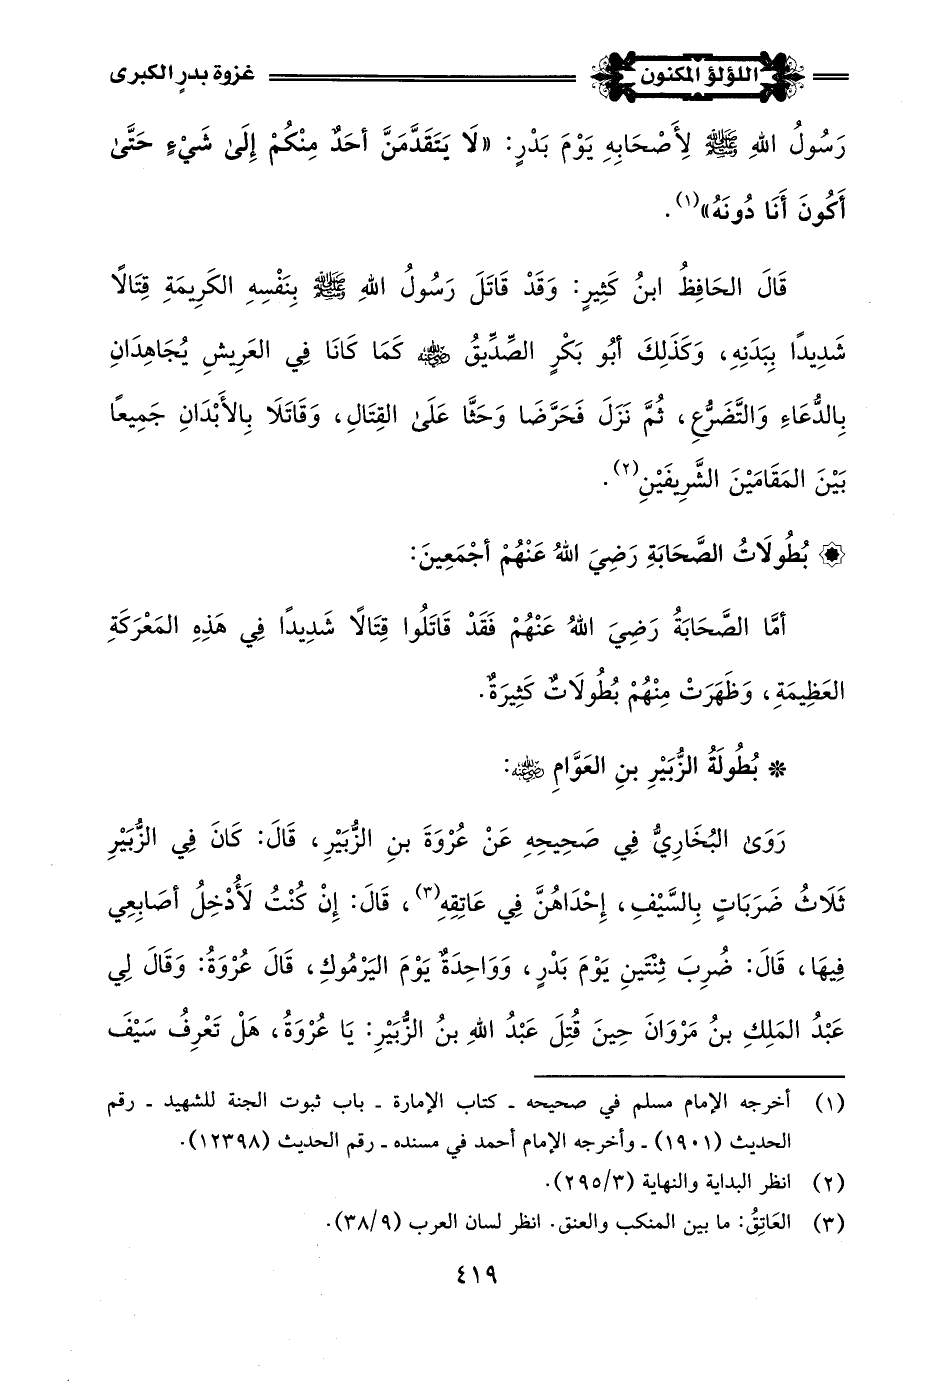 اللؤلؤ المكنون غزوة بدرٍ الكبرى
رَسُولُ اللهِ ﷺ لِأَصْحَابِهِ يَوْمَ بَدْرٍ: «لَا يَتَقَدَّمَنَّ أَحَدٌ مِنْكُمْ إِلَىٰ شَيْءٍ حَتَّىٰ
أَكُونَ أَنَا دُونَهُ»(١).
قَالَ الحَافِظُ ابنُ كَثِيرٍ: وَقَدْ قَاتَلَ رَسُولُ اللهِ ﷺ بِنَفْسِهِ الكَرِيمَةِ قِتَالًا
شَدِيدًا بِبَدَنِهِ، وَكَذَلِكَ أَبُو بَكْرٍ الصِّدِّيقُ رضي الله عنه كَمَا كَانَا فِي العَرِيشِ يُجَاهِدَانِ
بِالدُّعَاءِ وَالتَّضَرُّعِ، ثُمَّ نَزَلَ فَحَرَّضَا وَحَثَّا عَلَىٰ القِتَالِ، وَقَاتَلَا بِالأَبْدَانِ جَمِيعًا
بَيْنَ المَقَامَيْنَ الشَّرِيفَيْنِ(٢).
۞ بُطُولَاتُ الصَّحَابَةِ رَضِيَ اللهُ عَنْهُمْ أَجْمَعِينَ:
أَمَّا الصَّحَابَةُ رَضِيَ اللهُ عَنْهُمْ فَقَدْ قَاتَلُوا قِتَالًا شَدِيدًا فِي هَذِهِ المَعْرَكَةِ
العَظِيمَةِ، وَظَهَرَتْ مِنْهُمْ بُطُولَاتٌ كَثِيرَةٌ.
* بُطُولَةُ الزُّبَيْرِ بنِ العَوَّامِ رضي الله عنه:
رَوَىٰ البُخَارِيُّ فِي صَحِيحِهِ عَنْ عُرْوَةَ بنِ الزُّبَيْرِ، قَالَ: كَانَ فِي الزُّبَيْرِ
ثَلَاثُ ضَرَبَاتٍ بِالسَّيْفِ، إِحْدَاهُنَّ فِي عَاتِقِهِ(٣)، قَالَ: إِنْ كُنْتُ لَأُدْخِلُ أَصَابِعِي
فِيهَا، قَالَ: ضُرِبَ ثِنْتَينِ يَوْمَ بَدْرٍ، وَوَاحِدَةٌ يَوْمَ اليَرْمُوكِ، قَالَ عُرْوَةُ: وَقَالَ لِي
عَبْدُ المَلِكِ بنُ مَرْوَانَ حِينَ قُتِلَ عَبْدُ اللهِ بنُ الزُّبَيْرِ: يَا عُرْوَةُ، هَلْ تَعْرِفُ سَيْفَ
(١) أخرجه الإمام مسلم في صحيحه ـ كتاب الإمارة ـ باب ثبوت الجنة للشهيد ـ رقم
الحديث (١٩٠١) ـ وأخرجه الإمام أحمد في مسنده ـ رقم الحديث (١٢٣٩٨).
(٢) انظر البداية والنهاية (٣/ ٢٩٥).
(٣) العَاتِقُ: ما بين المنكب والعنق. انظر لسان العرب (٩/ ٣٨).
٤١٩